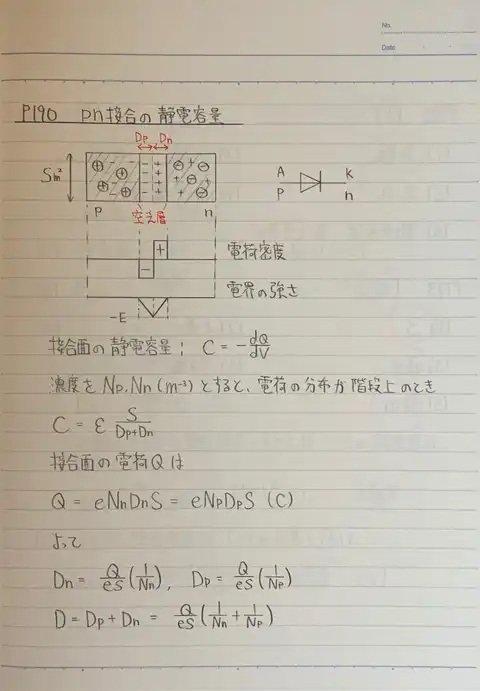 No.
Date
P190 pn接合の静電容量
Dp Dn
Sm²
A K
P n
p 空乏層 n
電荷密度
電界の強さ
-E
接合面の静電容量; C = -dQ/dV
濃度を Np, Nn (m⁻³) とすると、電荷の分布が階段上のとき
C = ε S/(Dp+Dn)
接合面の電荷Qは
Q = eNnDnS = eNpDpS (C)
よって
Dn = Q/eS (1/Nn), Dp = Q/eS (1/Np)
D = Dp + Dn = Q/eS (1/Nn + 1/Np)